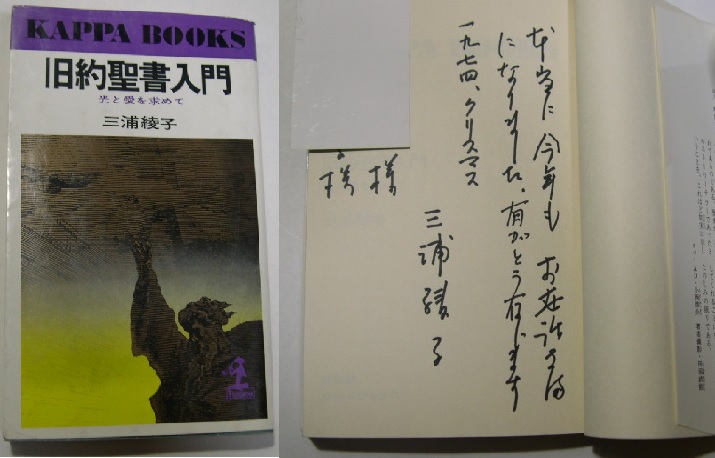 KAPPA BOOKS
旧約聖書入門
光と愛を求めて
三浦綾子
本当に今年もお世話さま
になりました。有がとう存じます
一九七四、クリスマス
三浦綾子
様
様